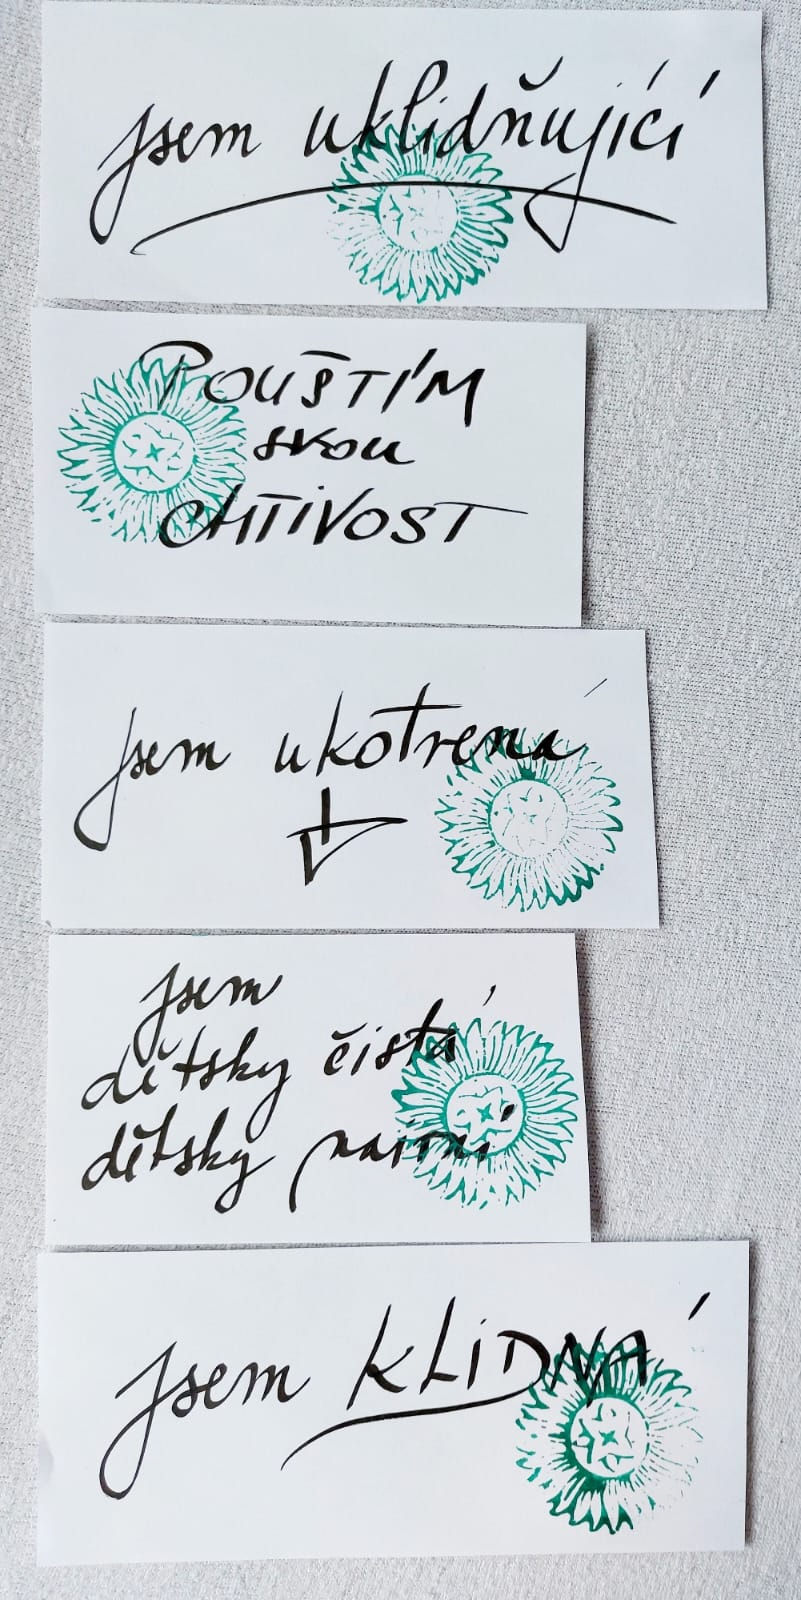 jsem uklidňující
POUŠTÍM
svou
CHTIVOST
jsem ukotvená
jsem
dětsky čistá
dětsky naivní
jsem KLIDNÁ